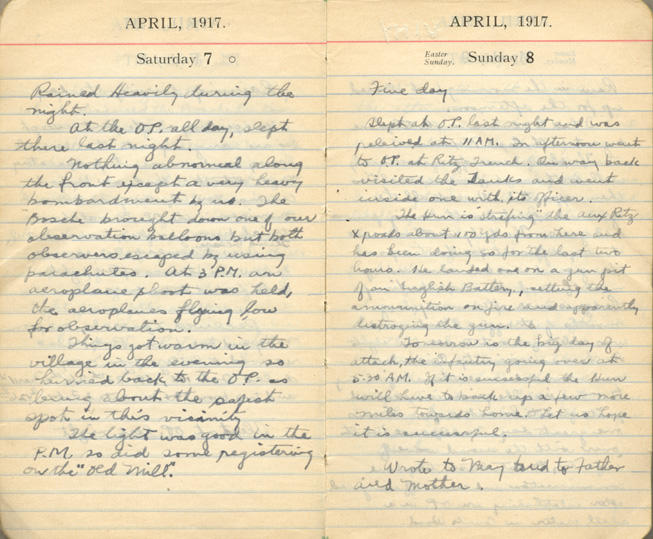 APRIL, 1917.
Saturday 7
Rained Heavily during the
night.
At the O.P. all day, slept
there last night.
Nothing abnormal along
the front except a very heavy
bombardment by us. The
Bosche brought down one of our
observation balloons but both
observers escaped by using
parachutes. At 3 P.M. an
aeroplane shoot was held,
the aeroplanes flying low
for observation.
Things got warm in the
village in the evening so
hurried back to the O.P. as
being about the safest
spot in this vicinity
The light was good in the
P.M. so did some registering
on the "Old Mill".
APRIL, 1917.
Easter
Sunday.
Sunday 8
Fine day
Slept at O.P. last night and was
releived at 11 AM. In afternoon went
to O.P. at Ritz Trench. On way back
visited the Tanks and went
inside one with its officer.
The Hun is "strafing" the Aux Ritz
X roads about 100 yds from here and
has been doing so for the last two
hours. He landed one on a gun pit
of an English Battery, setting the
ammunition on fire and apparently
distroying the gun.
Tomorrow is the big day of
attack, the infantry going over at
5-30 AM. If it is successful the Hun
will have to back up a few more
miles towards home. Let us hope
it is successful.
Wrote to May and to Father
and Mother.